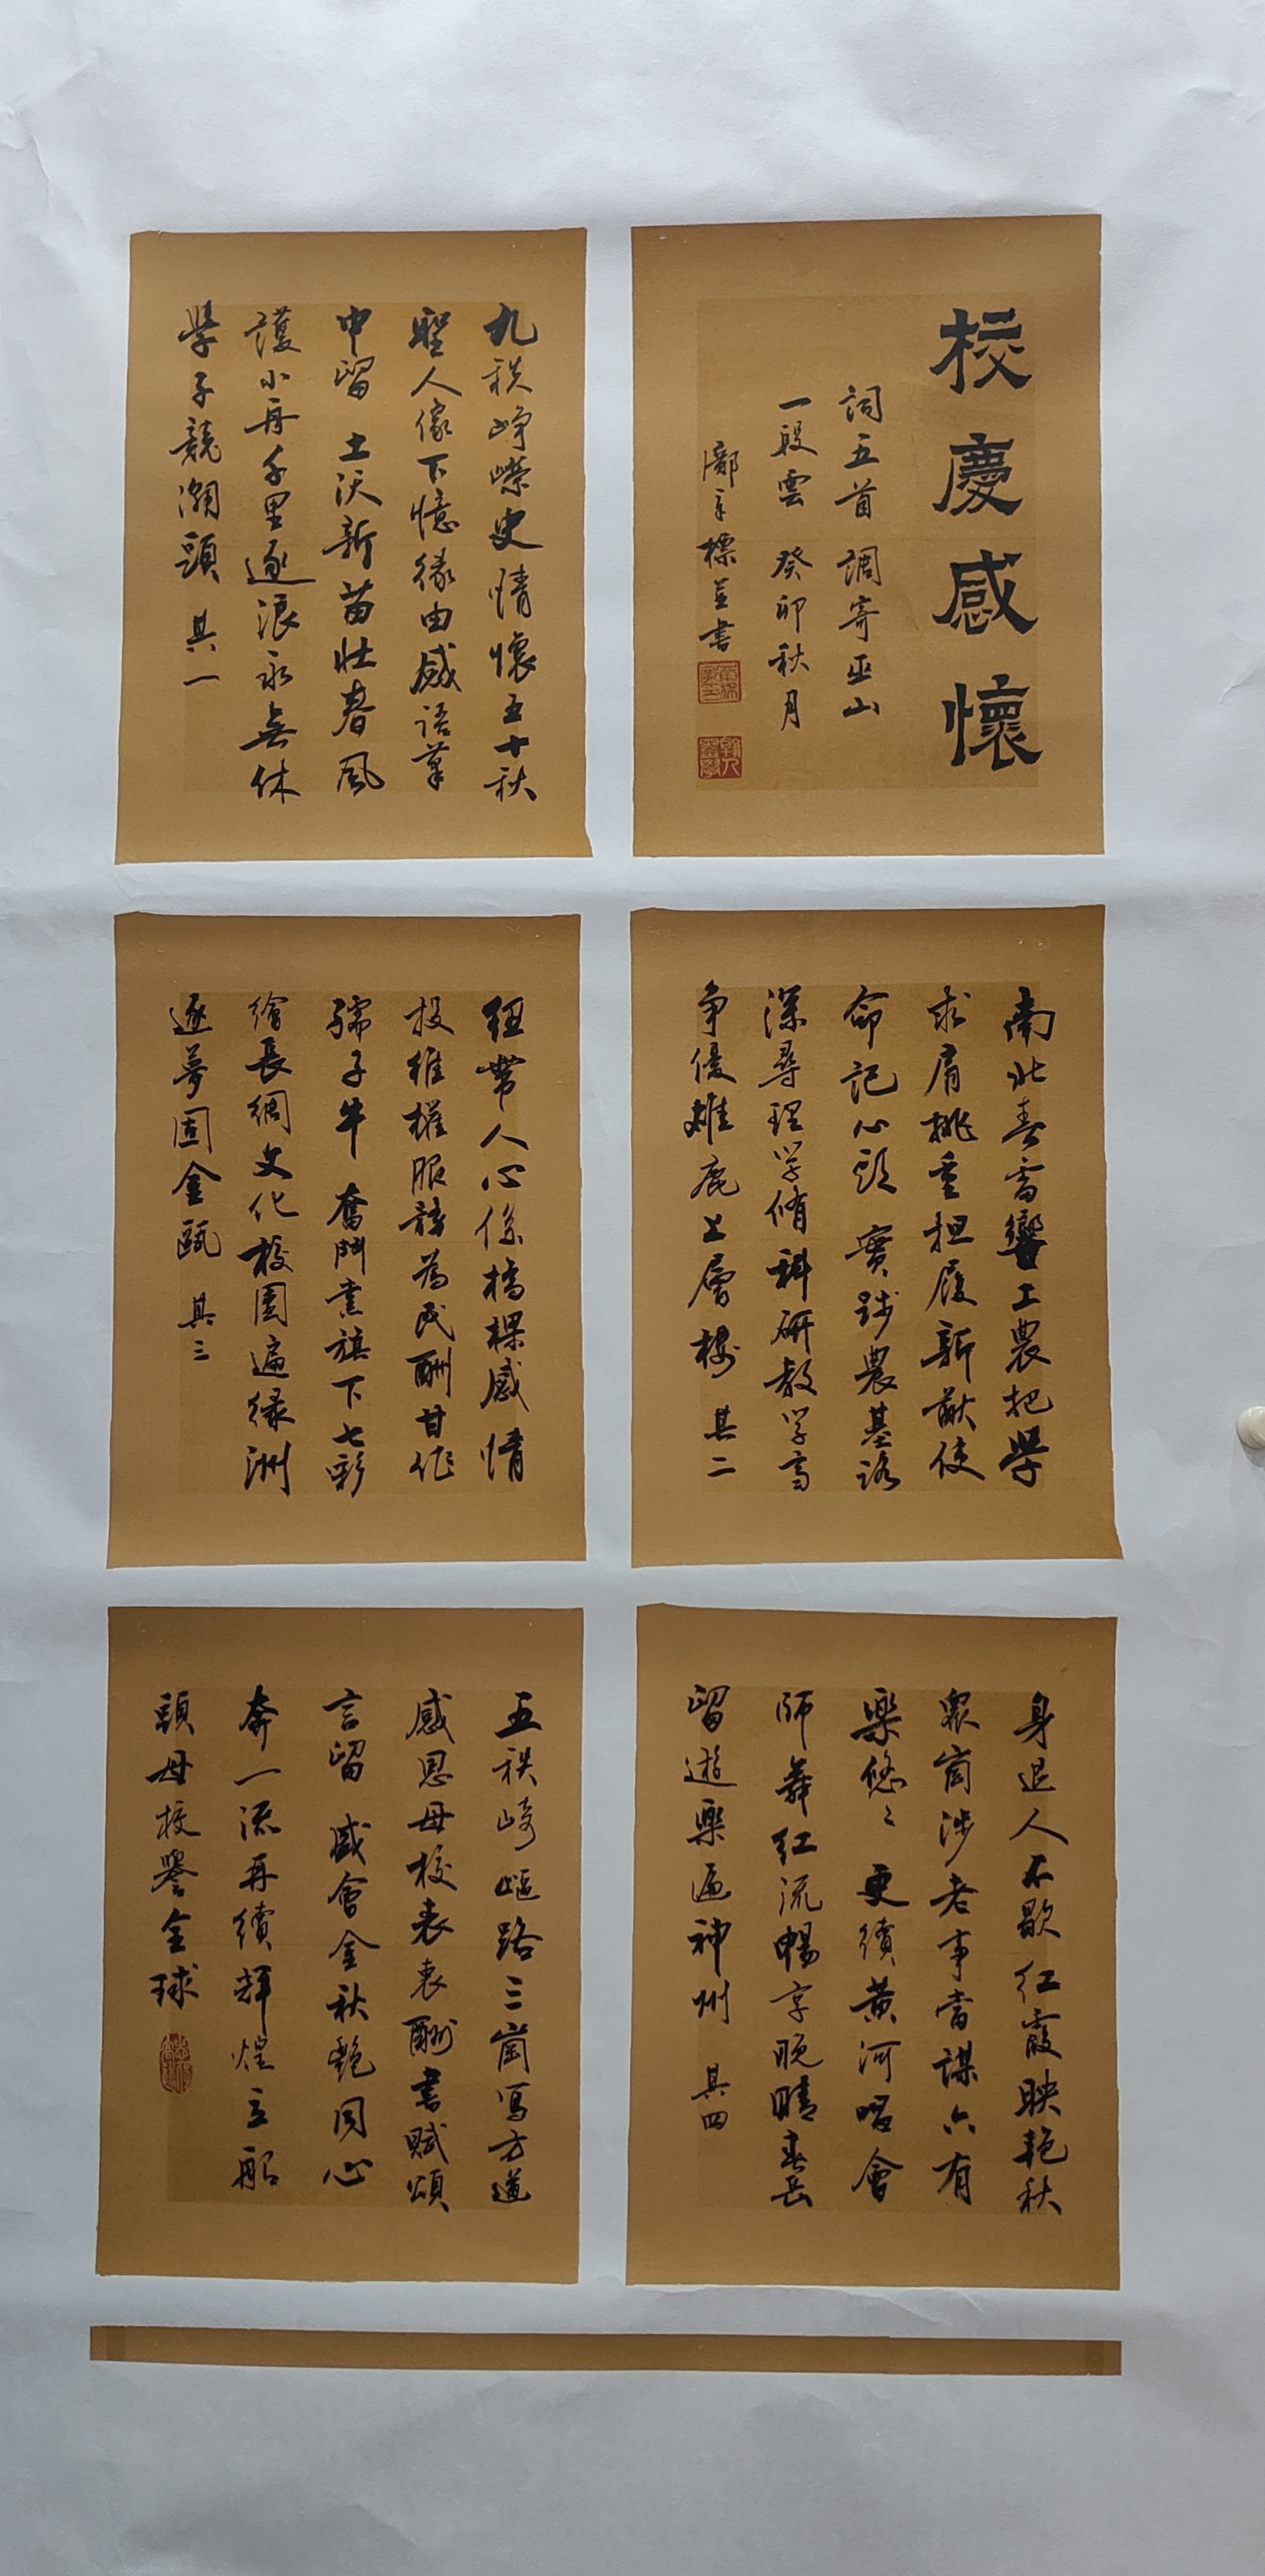 校慶感懷
詞五首 調寄巫山
一段雲 癸卯秋月
標並書
九秩崢嶸史情懷五十秋
聖人像下憶緣由感語筆
中留 土沃新苗壯春風
護小舟千里逐浪永無休
學子競潮頭 其一
南北春雷響工農把學
求肩挑重担履新猷使
命記心頭 實踐農基訪
深尋理学脩科研教学高
争優雄鹿上層樓 其二
紐帶人心係橋樑感情
投維權服務為民酬甘作
孺子牛 奮鬥党旗下七彩
繪長綢文化校園遍緑洲
逐夢固金甌 其三
身退人不歇红霞映艳秋
眾崗涉老事當謀六有
樂悠〻 更續黄河唱會
師舞红流暢享晚晴春岳
留遊樂遍神州 其四
五秩崎嶇路三崗写方遒
感恩母校表衷酬書賦頌
言留 盛會金秋艷同心
奔一流再續輝煌立船
頭母校譽全球